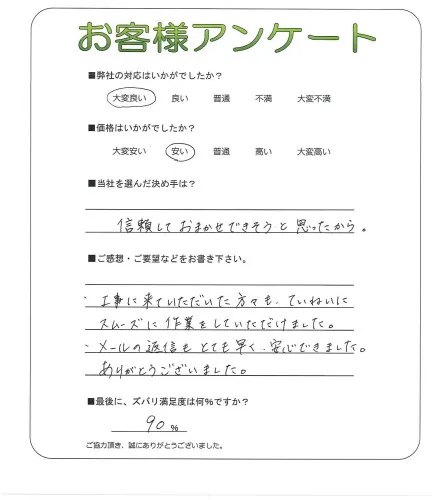 お客様アンケート
■弊社の対応はいかがでしたか?
大変良い 良い 普通 不満 大変不満
■価格はいかがでしたか?
大変安い 安い 普通 高い 大変高い
■当社を選んだ決め手は?
信頼しておまかせできそうと思ったから。
■ご感想・ご要望などをお書き下さい。
・工事に来ていただいた方々も、ていねいに
スムーズに作業をしていただけました。
・メールの返信もとても早く、安心できました。
ありがとうございました。
■最後に、ズバリ満足度は何%ですか?
90%
ご協力頂き、誠にありがとうございました。